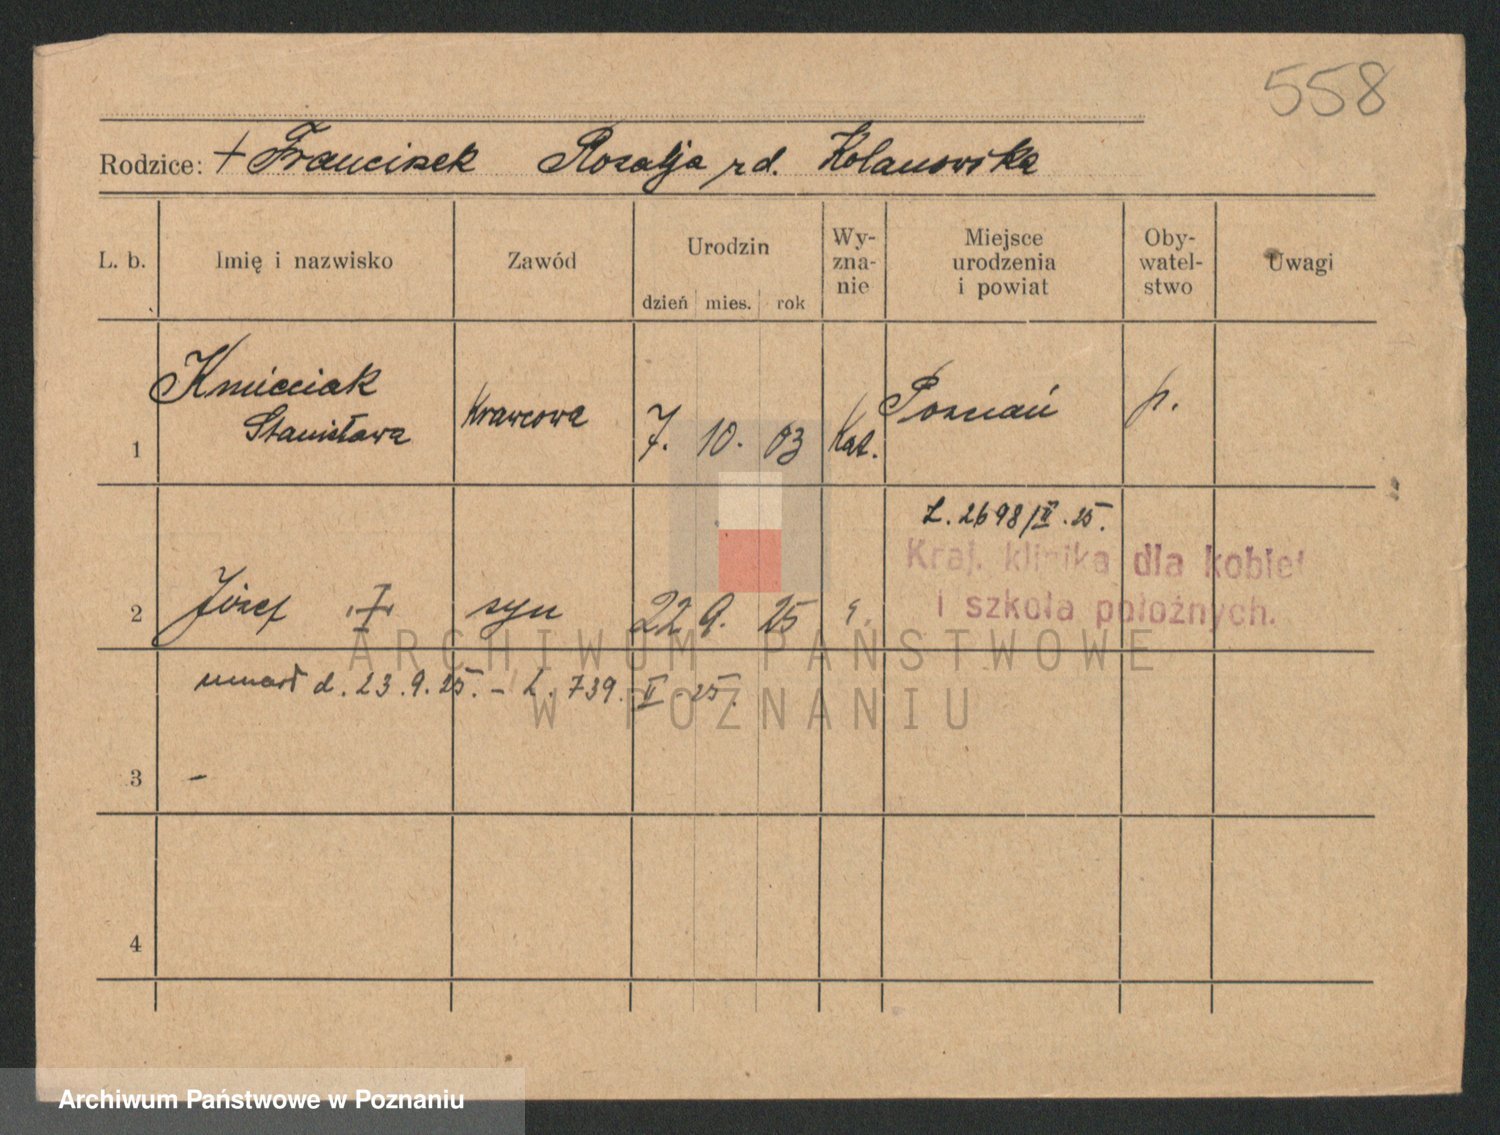 558
Rodzice: + Franciszek Rozalja rd. Kolanowska
L. b. Imię i nazwisko Zawód Urodzin dzień mies. rok Wy-zna-nie Miejsce urodzenia i powiat Oby-watel-stwo Uwagi
Kmieciak
1 Stanisława Krawcowa 7. 10. 03 Kat. Poznań p.
L. 2698/II. 25.
Kraj. klinika dla kobiet
i szkoła położnych.
2 Józef syn 22 9. 25 "
umarł d. 23.9.25. – L. 739. II 25.
3 –
4
ARCHIWUM PAŃSTWOWE
W POZNANIU
Archiwum Państwowe w Poznaniu